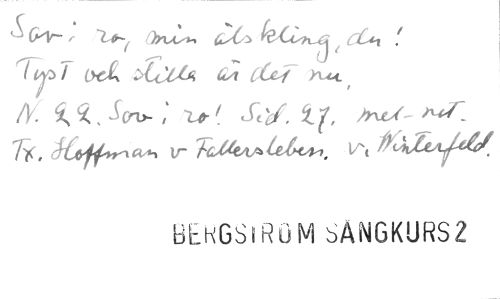 Sov i ro, min älskling, du!
Tyst och stilla är det nu,
N. 22. Sov i ro! Sid. 27. mel-not.
Tx. Hoffman v Fallersleben. v. Winterfeld.
BERGSTRÖM SÅNGKURS 2